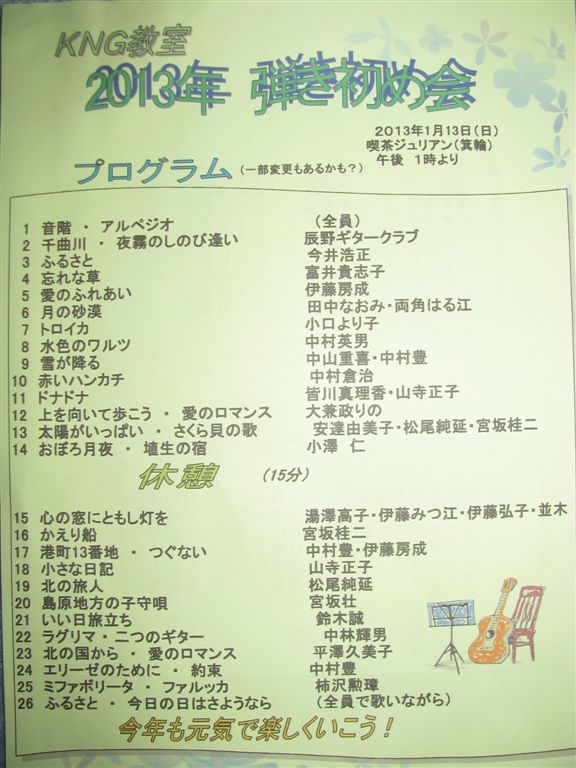 KNG教室
2013年 弾き初め会
2013年1月13日(日)
喫茶ジュリアン(箕輪)
午後 1時より
プログラム(一部変更もあるかも?)
1 音階 ・ アルペジオ (全員)
2 千曲川 ・ 夜霧のしのび逢い 辰野ギタークラブ
3 ふるさと 今井浩正
4 忘れな草 富井貴志子
5 愛のふれあい 伊藤房成
6 月の砂漠 田中なおみ・両角はる江
7 トロイカ 小口より子
8 水色のワルツ 中村英男
9 雪が降る 中山重喜・中村豊
10 赤いハンカチ 中村倉治
11 ドナドナ 皆川真理香・山寺正子
12 上を向いて歩こう ・ 愛のロマンス 大兼政りの
13 太陽がいっぱい ・ さくら貝の歌 安達由美子・松尾純延・宮坂桂二
14 おぼろ月夜 ・ 埴生の宿 小澤 仁
休憩 (15分)
15 心の窓にともし灯を 湯澤高子・伊藤みつ江・伊藤弘子・並木
16 かえり船 宮坂桂二
17 港町13番地 ・ つぐない 中村豊・伊藤房成
18 小さな日記 山寺正子
19 北の旅人 松尾純延
20 島原地方の子守唄 宮坂壮
21 いい日旅立ち 鈴木誠
22 ラグリマ・二つのギター 中林輝男
23 北の国から ・ 愛のロマンス 平澤久美子
24 エリーゼのために ・ 約束 中村豊
25 ミファボリータ ・ ファルッカ 柿沢勲瑋
26 ふるさと ・ 今日の日はさようなら (全員で歌いながら)
今年も元気で楽しくいこう!